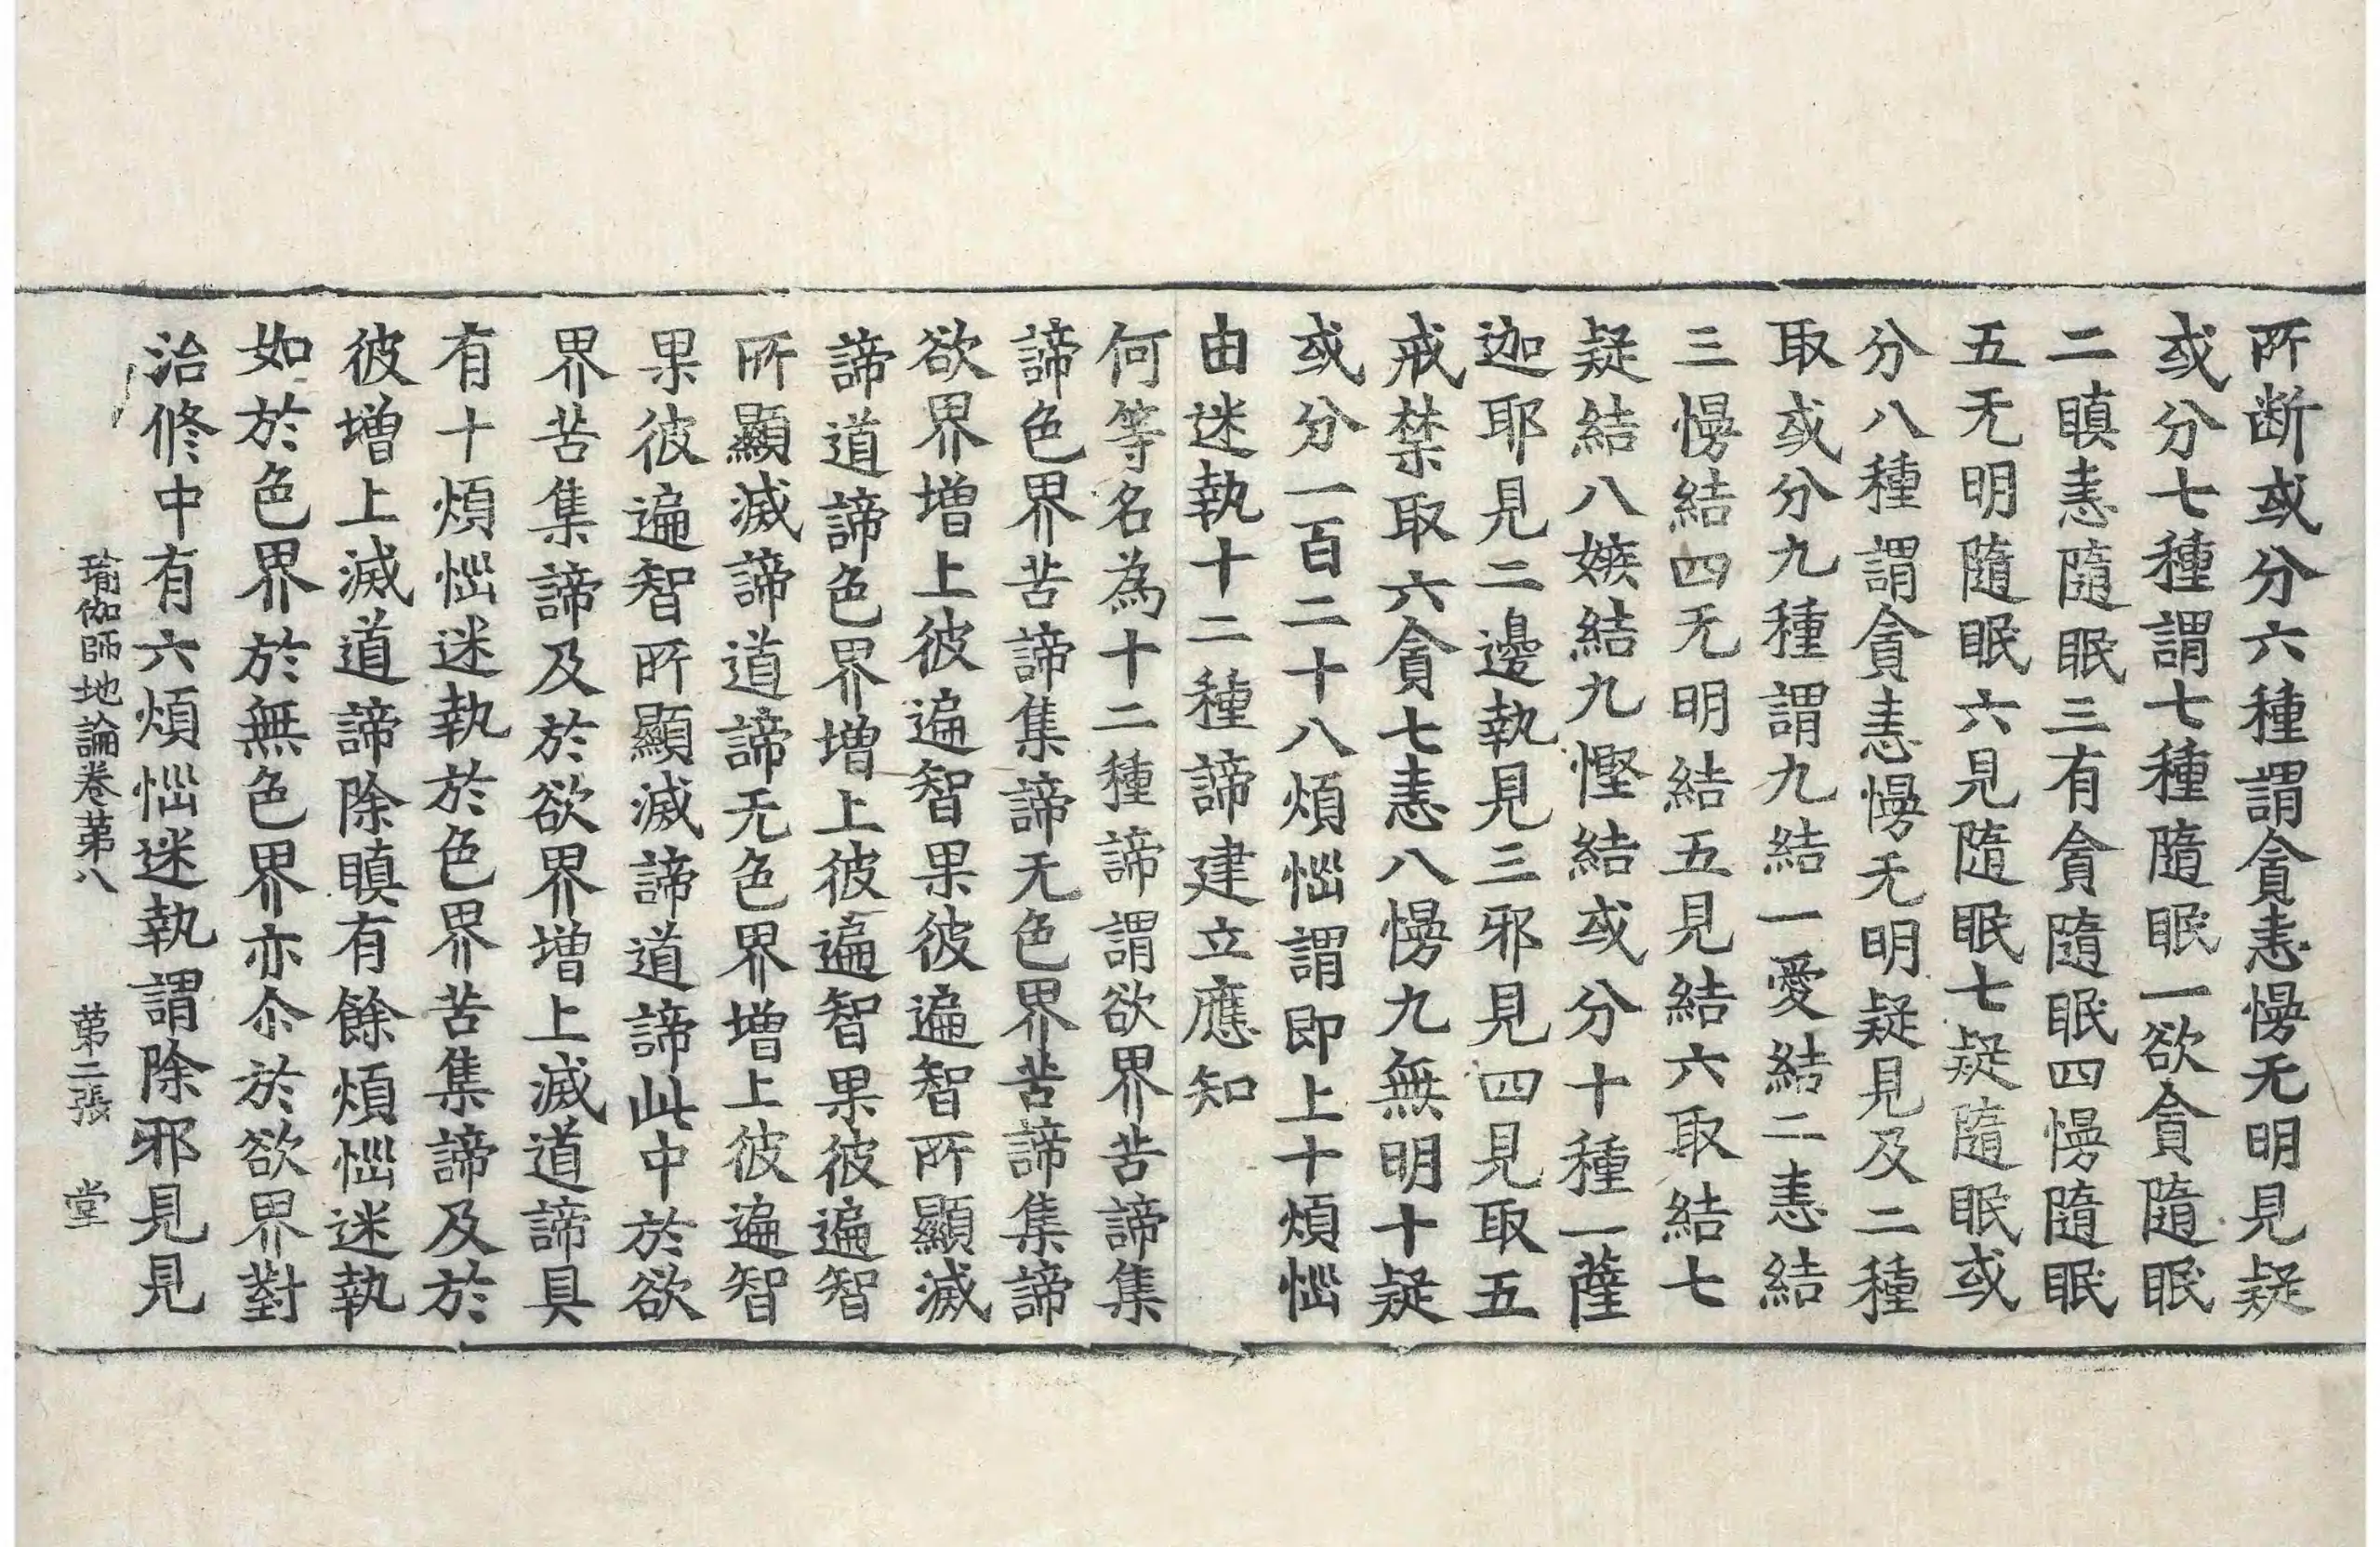 所断或分六種謂貪恚慢无明見疑
或分七種謂七種隨眠一欲貪隨眠
二瞋恚隨眠三有貪隨眠四慢隨眠
五无明隨眠六見隨眠七疑隨眠或
分八種謂貪恚慢无明疑見及二種
取或分九種謂九結一愛結二恚結
三慢結四无明結五見結六取結七
疑結八嫉結九慳結或分十種一薩
迦耶見二邊執見三邪見四見取五
戒禁取六貪七恚八慢九無明十疑
或分一百二十八煩惱謂即上十煩惱
由迷執十二種諦建立應知
何等名為十二種諦謂欲界苦諦集
諦色界苦諦集諦无色界苦諦集諦
欲界增上彼遍智果彼遍智所顯滅
諦道諦色界增上彼遍智果彼遍智
所顯滅諦道諦无色界增上彼遍智
果彼遍智所顯滅諦道諦此中於欲
界苦集諦及於欲界增上滅道諦具
有十煩惱迷執於色界苦集諦及於
彼增上滅道諦除瞋有餘煩惱迷執
如於色界於無色界亦尒於欲界對
治修中有六煩惱迷執謂除邪見見
瑜伽師地論卷苐八 苐二張 堂